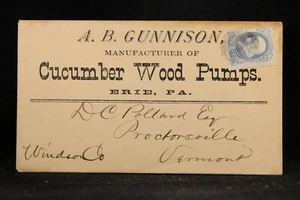 A. B. GUNNISON,
MANUFACTURER OF
Cucumber Wood Pumps.
ERIE, PA.
D C Pollard Esq
Proctorsville
Windsor Co Vermont